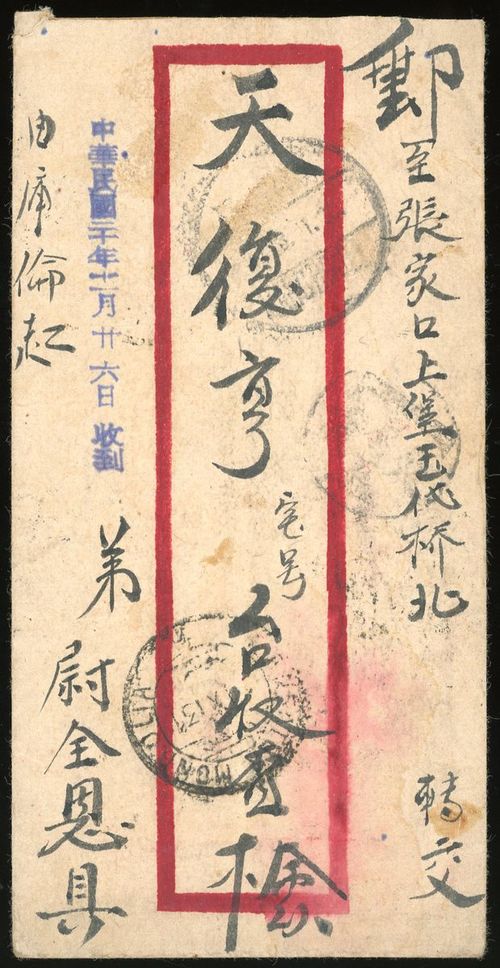 郵至張家口上堡玉代桥北
轉交
天復亨宝号台收查檢
弟尉全恩具
中華民國二十年十一月廿六日 收到
由庫倫起